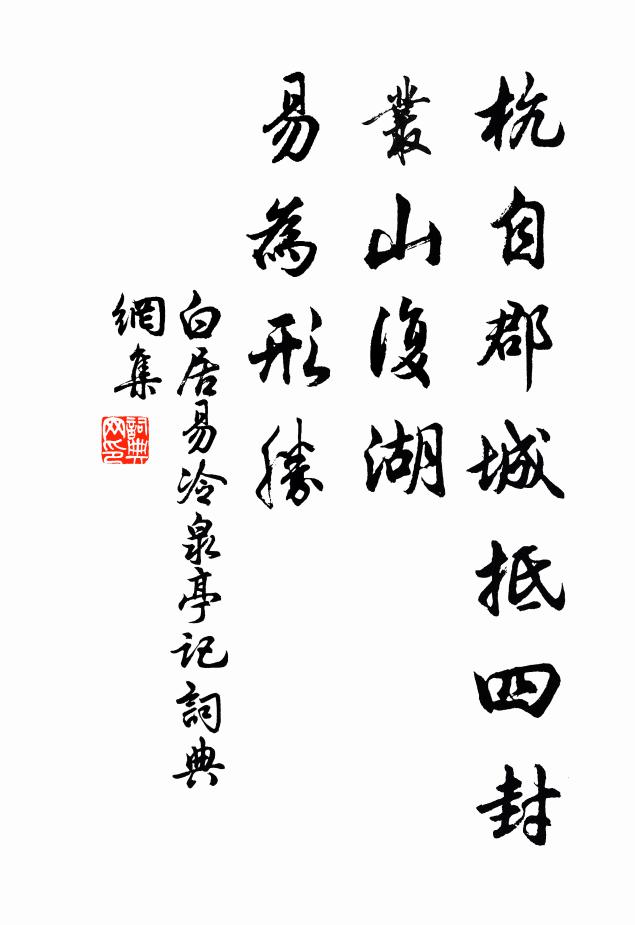 杭自郡城抵四封
叢山復湖
易為形勝
白居易冷泉亭記詞典
網集
詞典
网印